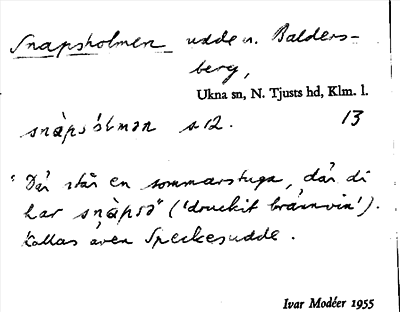 Snapsholmen udde v. Balders-
berg,
Ukna sn, N. Tjusts hd, Klm. l.
snàpsólmən s 12. 13
"Då̇r står en sommarstuga, då̇r di
har snàpsə" ('druckit brännvin').
Kallas även Speckesudde.
Ivar Modéer 1955